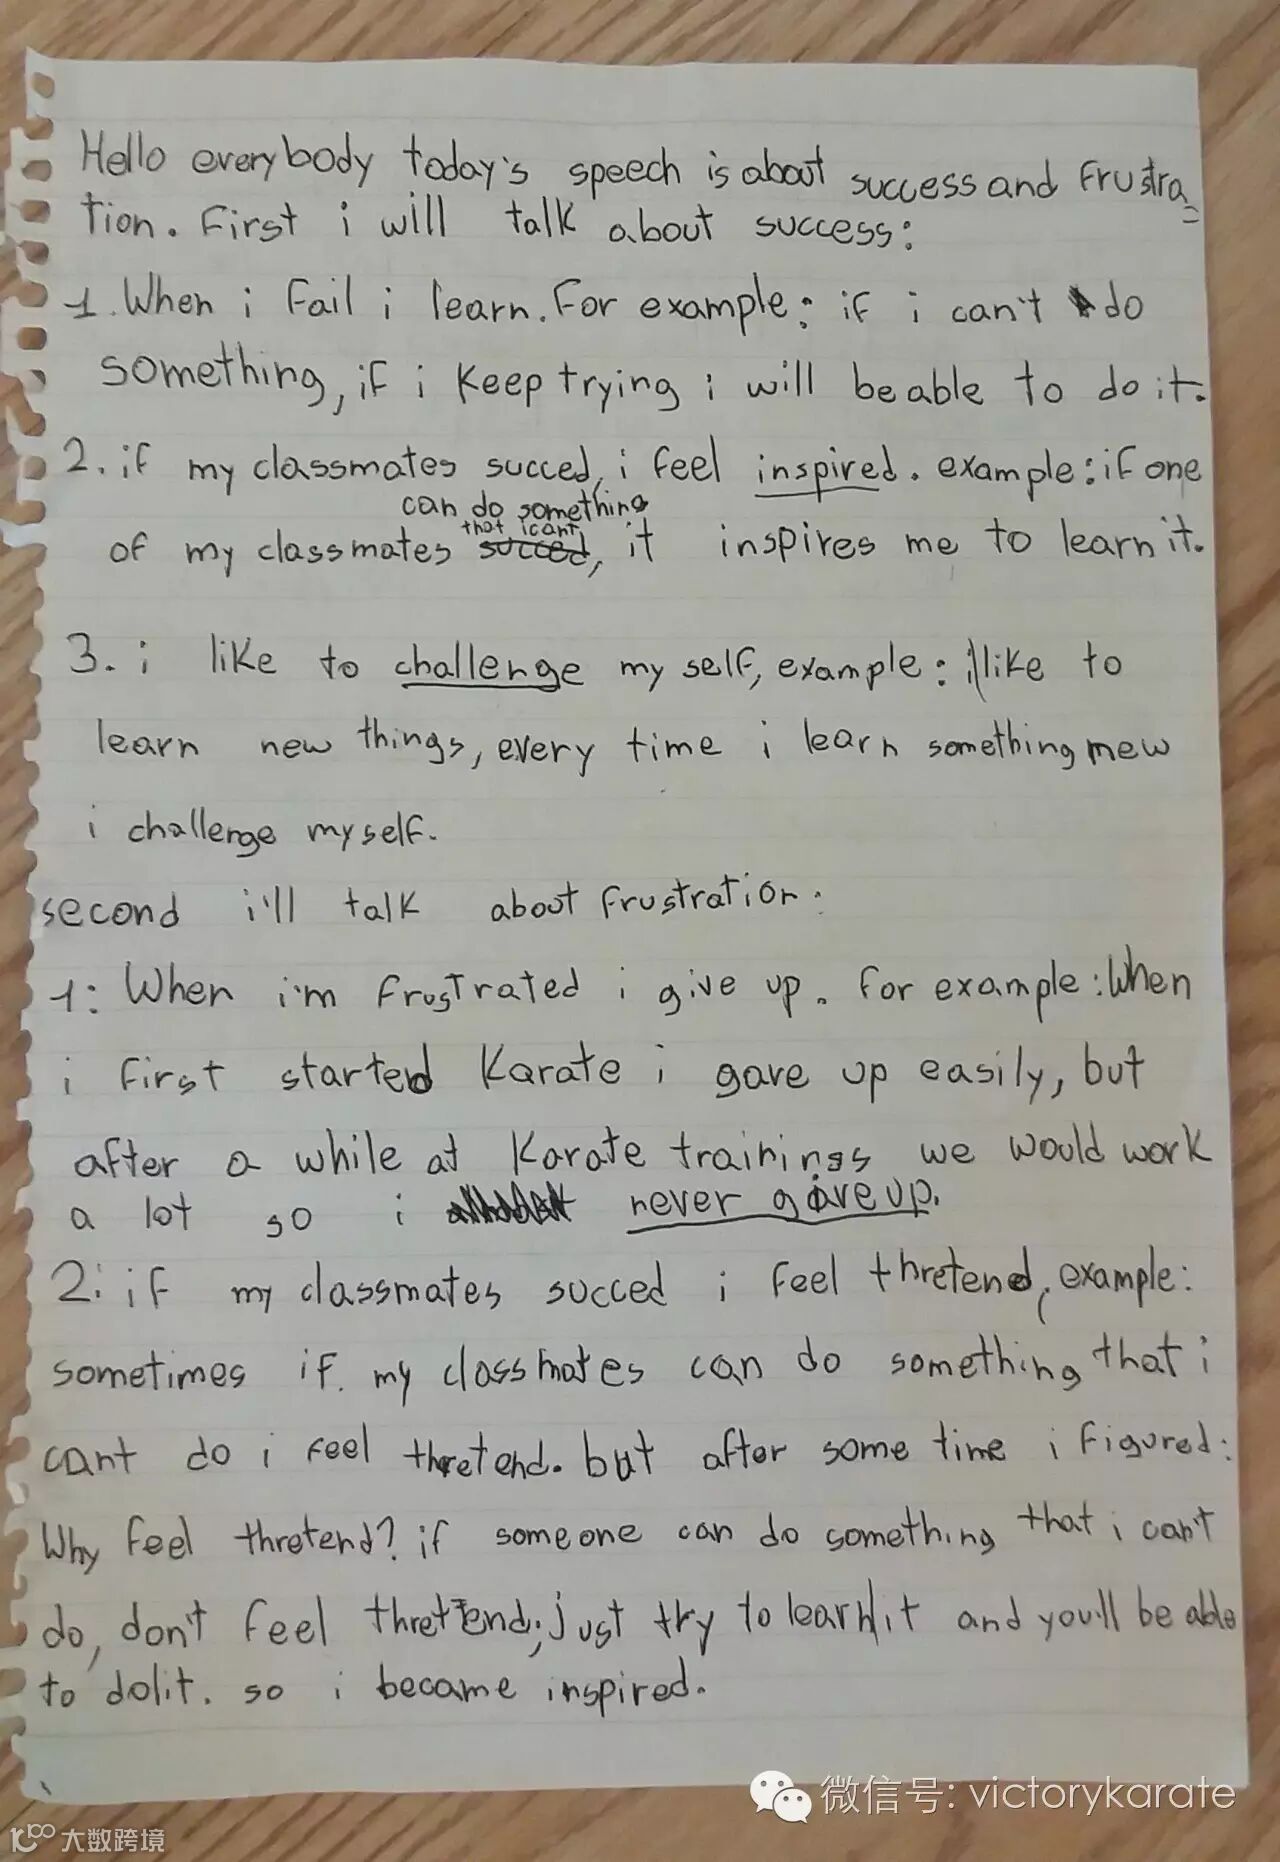 Hello everybody today's speech is about success and frustra=
tion. First i will talk about success:
1. When i fail i learn. For example: if i can't do
something, if i keep trying i will be able to do it.
2. if my classmates succed, i feel inspired. example: if one
can do something
that icant
of my classmates succed, it inspires me to learn it.
3. i like to challenge my self, example: i like to
learn new things, every time i learn something mew
i challenge myself.
second i'll talk about frustration:
1: When i'm frustrated i give up. For example: When
i first started Karate i gave up easily, but
after a while at Karate trainings we would work
a lot so i never give up.
2: if my classmates succed i feel thretend, example:
sometimes if my classmates can do something that i
cant do i feel thretend. but after some time i figured:
Why feel thretend? if someone can do something that i can't
do, don't feel thretend, just try to learn it and you'll be able
to do it. so i became inspired.
微信号: victorykarate
大数跨境